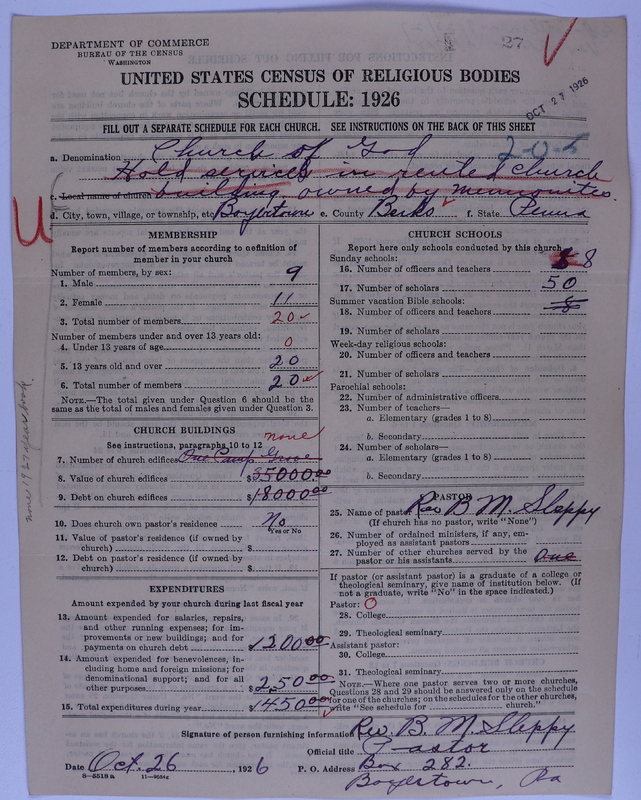 27
DEPARTMENT OF COMMERCE
BUREAU OF THE CENSUS
WASHINGTON
UNITED STATES CENSUS OF RELIGIOUS BODIES
SCHEDULE: 1926
OCT 27 1926
FILL OUT A SEPARATE SCHEDULE FOR EACH CHURCH. SEE INSTRUCTIONS ON THE BACK OF THIS SHEET
a. Denomination Church of God 2-0-5
Hold services in rented church
c. Local name of church building owned by Mennonites.
d. City, town, village, or township, etc. Boyertown e. County Berks f. State Penna
MEMBERSHIP
Report number of members according to definition of
member in your church
Number of members, by sex:
1. Male 9
2. Female 11
3. Total number of members 20
Number of members under and over 13 years old:
4. Under 13 years of age 0
5. 13 years old and over 20
6. Total number of members 20
NOTE.—The total given under Question 6 should be
the same as the total of males and females given under Question 3.
CHURCH BUILDINGS
See instructions, paragraphs 10 to 12
none
7. Number of church edifices One Camp Grove
8. Value of church edifices $35000.00
9. Debt on church edifices $18000.00
10. Does church own pastor's residence No
Yes or No
11. Value of pastor's residence (if owned by
church) $
12. Debt on pastor's residence (if owned by
church) $
EXPENDITURES
Amount expended by your church during last fiscal year
13. Amount expended for salaries, repairs,
and other running expenses; for im-
provements or new buildings; and for
payments on church debt $1200.00
14. Amount expended for benevolences, in-
cluding home and foreign missions; for
denominational support; and for all
other purposes $250.00
15. Total expenditures during year $1450.00
CHURCH SCHOOLS
Report here only schools conducted by this church
Sunday schools:
16. Number of officers and teachers 8
17. Number of scholars 50
Summer vacation Bible schools:
18. Number of officers and teachers 8
19. Number of scholars
Week-day religious schools:
20. Number of officers and teachers
21. Number of scholars
Parochial schools:
22. Number of administrative officers
23. Number of teachers—
a. Elementary (grades 1 to 8)
b. Secondary
24. Number of scholars—
a. Elementary (grades 1 to 8)
b. Secondary
PASTOR
25. Name of pastor Rev B. M. Sleppy
(If church has no pastor, write "None")
26. Number of ordained ministers, if any, em-
ployed as assistant pastors
27. Number of other churches served by the
pastor or his assistants One
If pastor (or assistant pastor) is a graduate of a college or
theological seminary, give name of institution below. (If
not a graduate, write "No" in the space indicated.)
Pastor: O
28. College
29. Theological seminary
Assistant pastor:
30. College
31. Theological seminary
NOTE.—Where one pastor serves two or more churches,
Questions 28 and 29 should be answered only on the schedule
for one of the churches; on the schedules for the other churches,
write "See schedule for church."
Signature of person furnishing information Rev. B. M. Sleppy
Official title Pastor
Date Oct. 26, 1926 P. O. Address Box 282.
8—5518a 11—9034g
Boyertown, Pa
none 1927 yearbook.